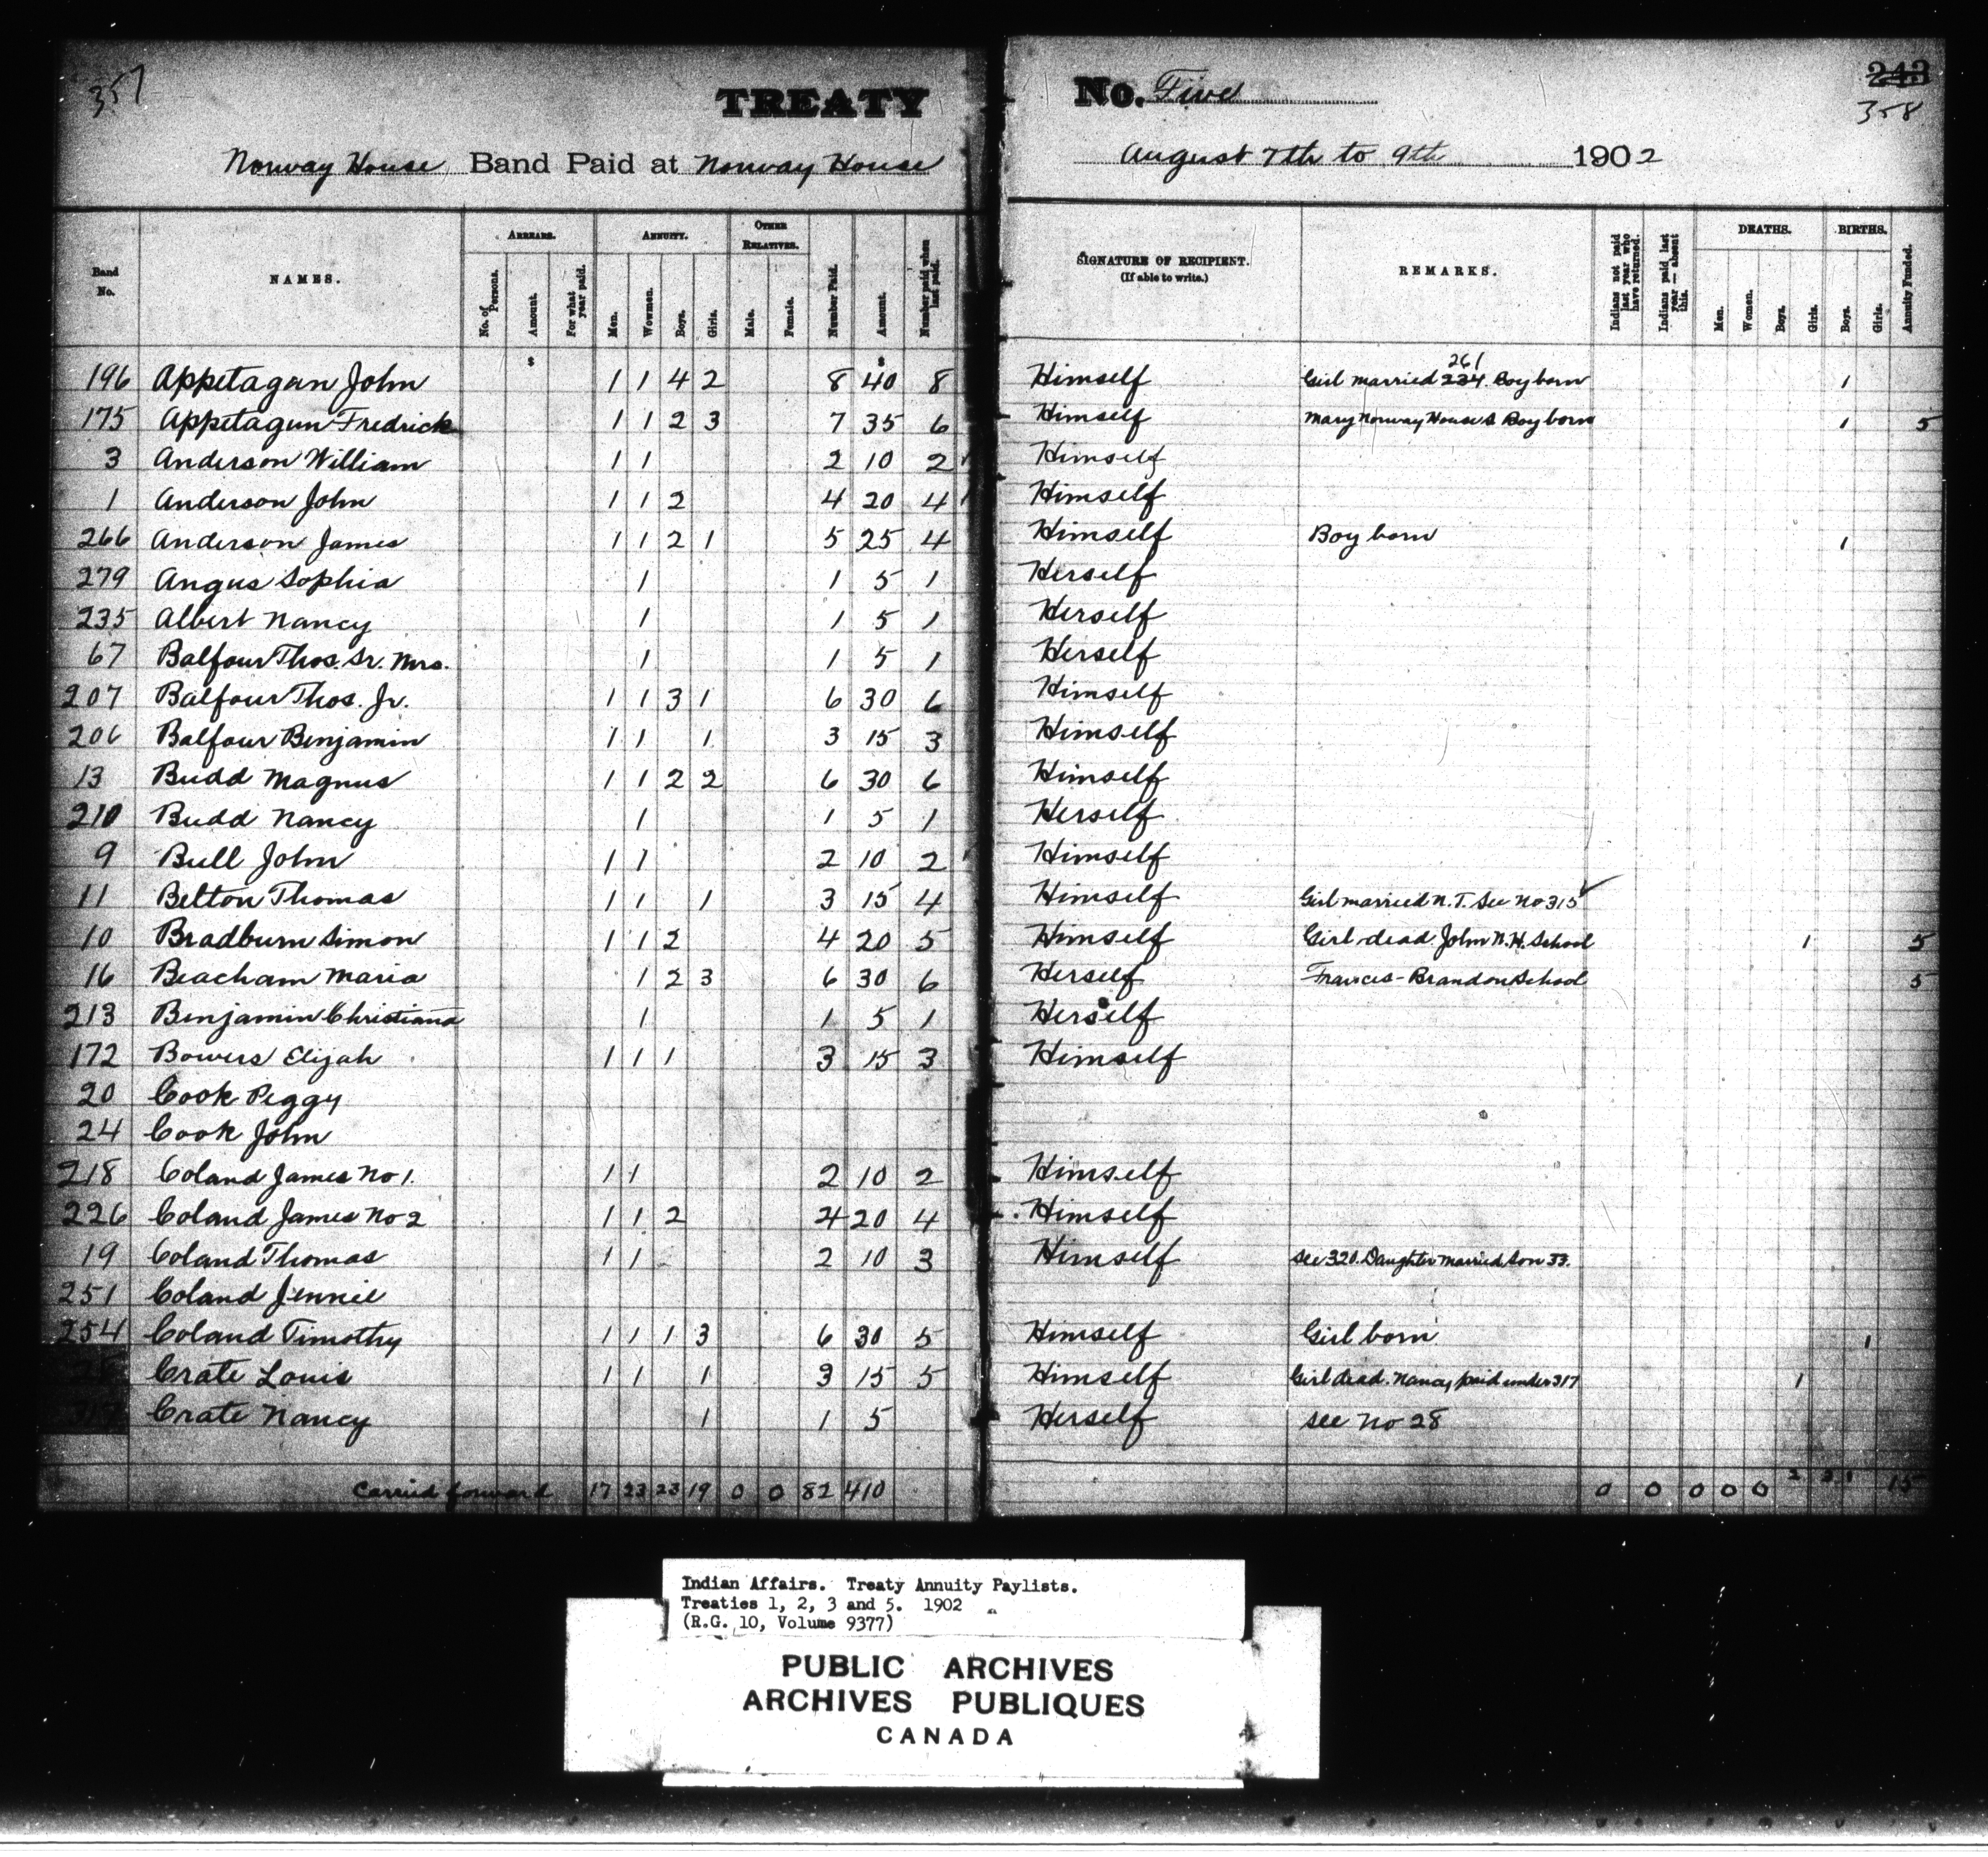 357
TREATY No. Five
243
358
Norway House Band Paid at Norway House August 7th to 9th 1902
Band No. NAMES. ARREARS. No. of Persons. Amount. For what year paid. ANNUITY. Men. Wowmen. Boys. Girls. OTHER RELATIVES. Male. Female. Number Paid. Amount. Number paid when last paid. SIGNATURE OF RECIPIENT. (If able to write.) REMARKS. Indians not paid last year who have returned. Indians paid last year — absent this. DEATHS. Men. Women. Boys. Girls. BIRTHS. Boys. Girls. Annuity Funded.
$ $
196 Appetagan John 1 1 4 2 8 40 8 Himself Girl married 234 261 Boy born 1
175 Appetagun Fredrick 1 1 2 3 7 35 6 Himself Mary Norway House S Boy born 1 5
3 Anderson William 1 1 2 10 2 Himself
1 Anderson John 1 1 2 4 20 4 Himself
266 Anderson James 1 1 2 1 5 25 4 Himself Boy born 1
279 Angus Sophia 1 1 5 1 Herself
235 Albert Nancy 1 1 5 1 Herself
67 Balfour Thos. Sr. Mrs. 1 1 5 1 Herself
207 Balfour Thos. Jr. 1 1 3 1 6 30 6 Himself
206 Balfour Benjamin 1 1 1 3 15 3 Himself
13 Budd Magnus 1 1 2 2 6 30 6 Himself
210 Budd Nancy 1 1 5 1 Herself
9 Bull John 1 1 2 10 2 Himself
11 Belton Thomas 1 1 1 3 15 4 Himself Girl married N.T. See No 315
10 Bradburn Simon 1 1 2 4 20 5 Himself Girl dead John N.H. School 1 5
16 Beacham Maria 1 2 3 6 30 6 Herself Frances - Brandon School 5
213 Benjamin Christiana 1 1 5 1 Herself
172 Bowers Elijah 1 1 1 3 15 3 Himself
20 Cook Peggy
24 Cook John
218 Coland James No 1. 1 1 2 10 2 Himself
226 Coland James No 2 1 1 2 4 20 4 Himself
19 Coland Thomas 1 1 2 10 3 Himself See 320. Daughter married son 33.
251 Coland Jennie
254 Coland Timothy 1 1 1 3 6 30 5 Himself Girl born 1
28 Crate Louis 1 1 1 3 15 5 Himself Girl dead. Nancy paid under 317 1
317 Crate Nancy 1 1 5 Herself See No 28
Carried forward 17 23 23 19 0 0 82 410 0 0 0 0 0 2 3 1 15
Indian Affairs. Treaty Annuity Paylists.
Treaties 1, 2, 3 and 5. 1902
(R.G. 10, Volume 9377)
PUBLIC ARCHIVES
ARCHIVES PUBLIQUES
CANADA